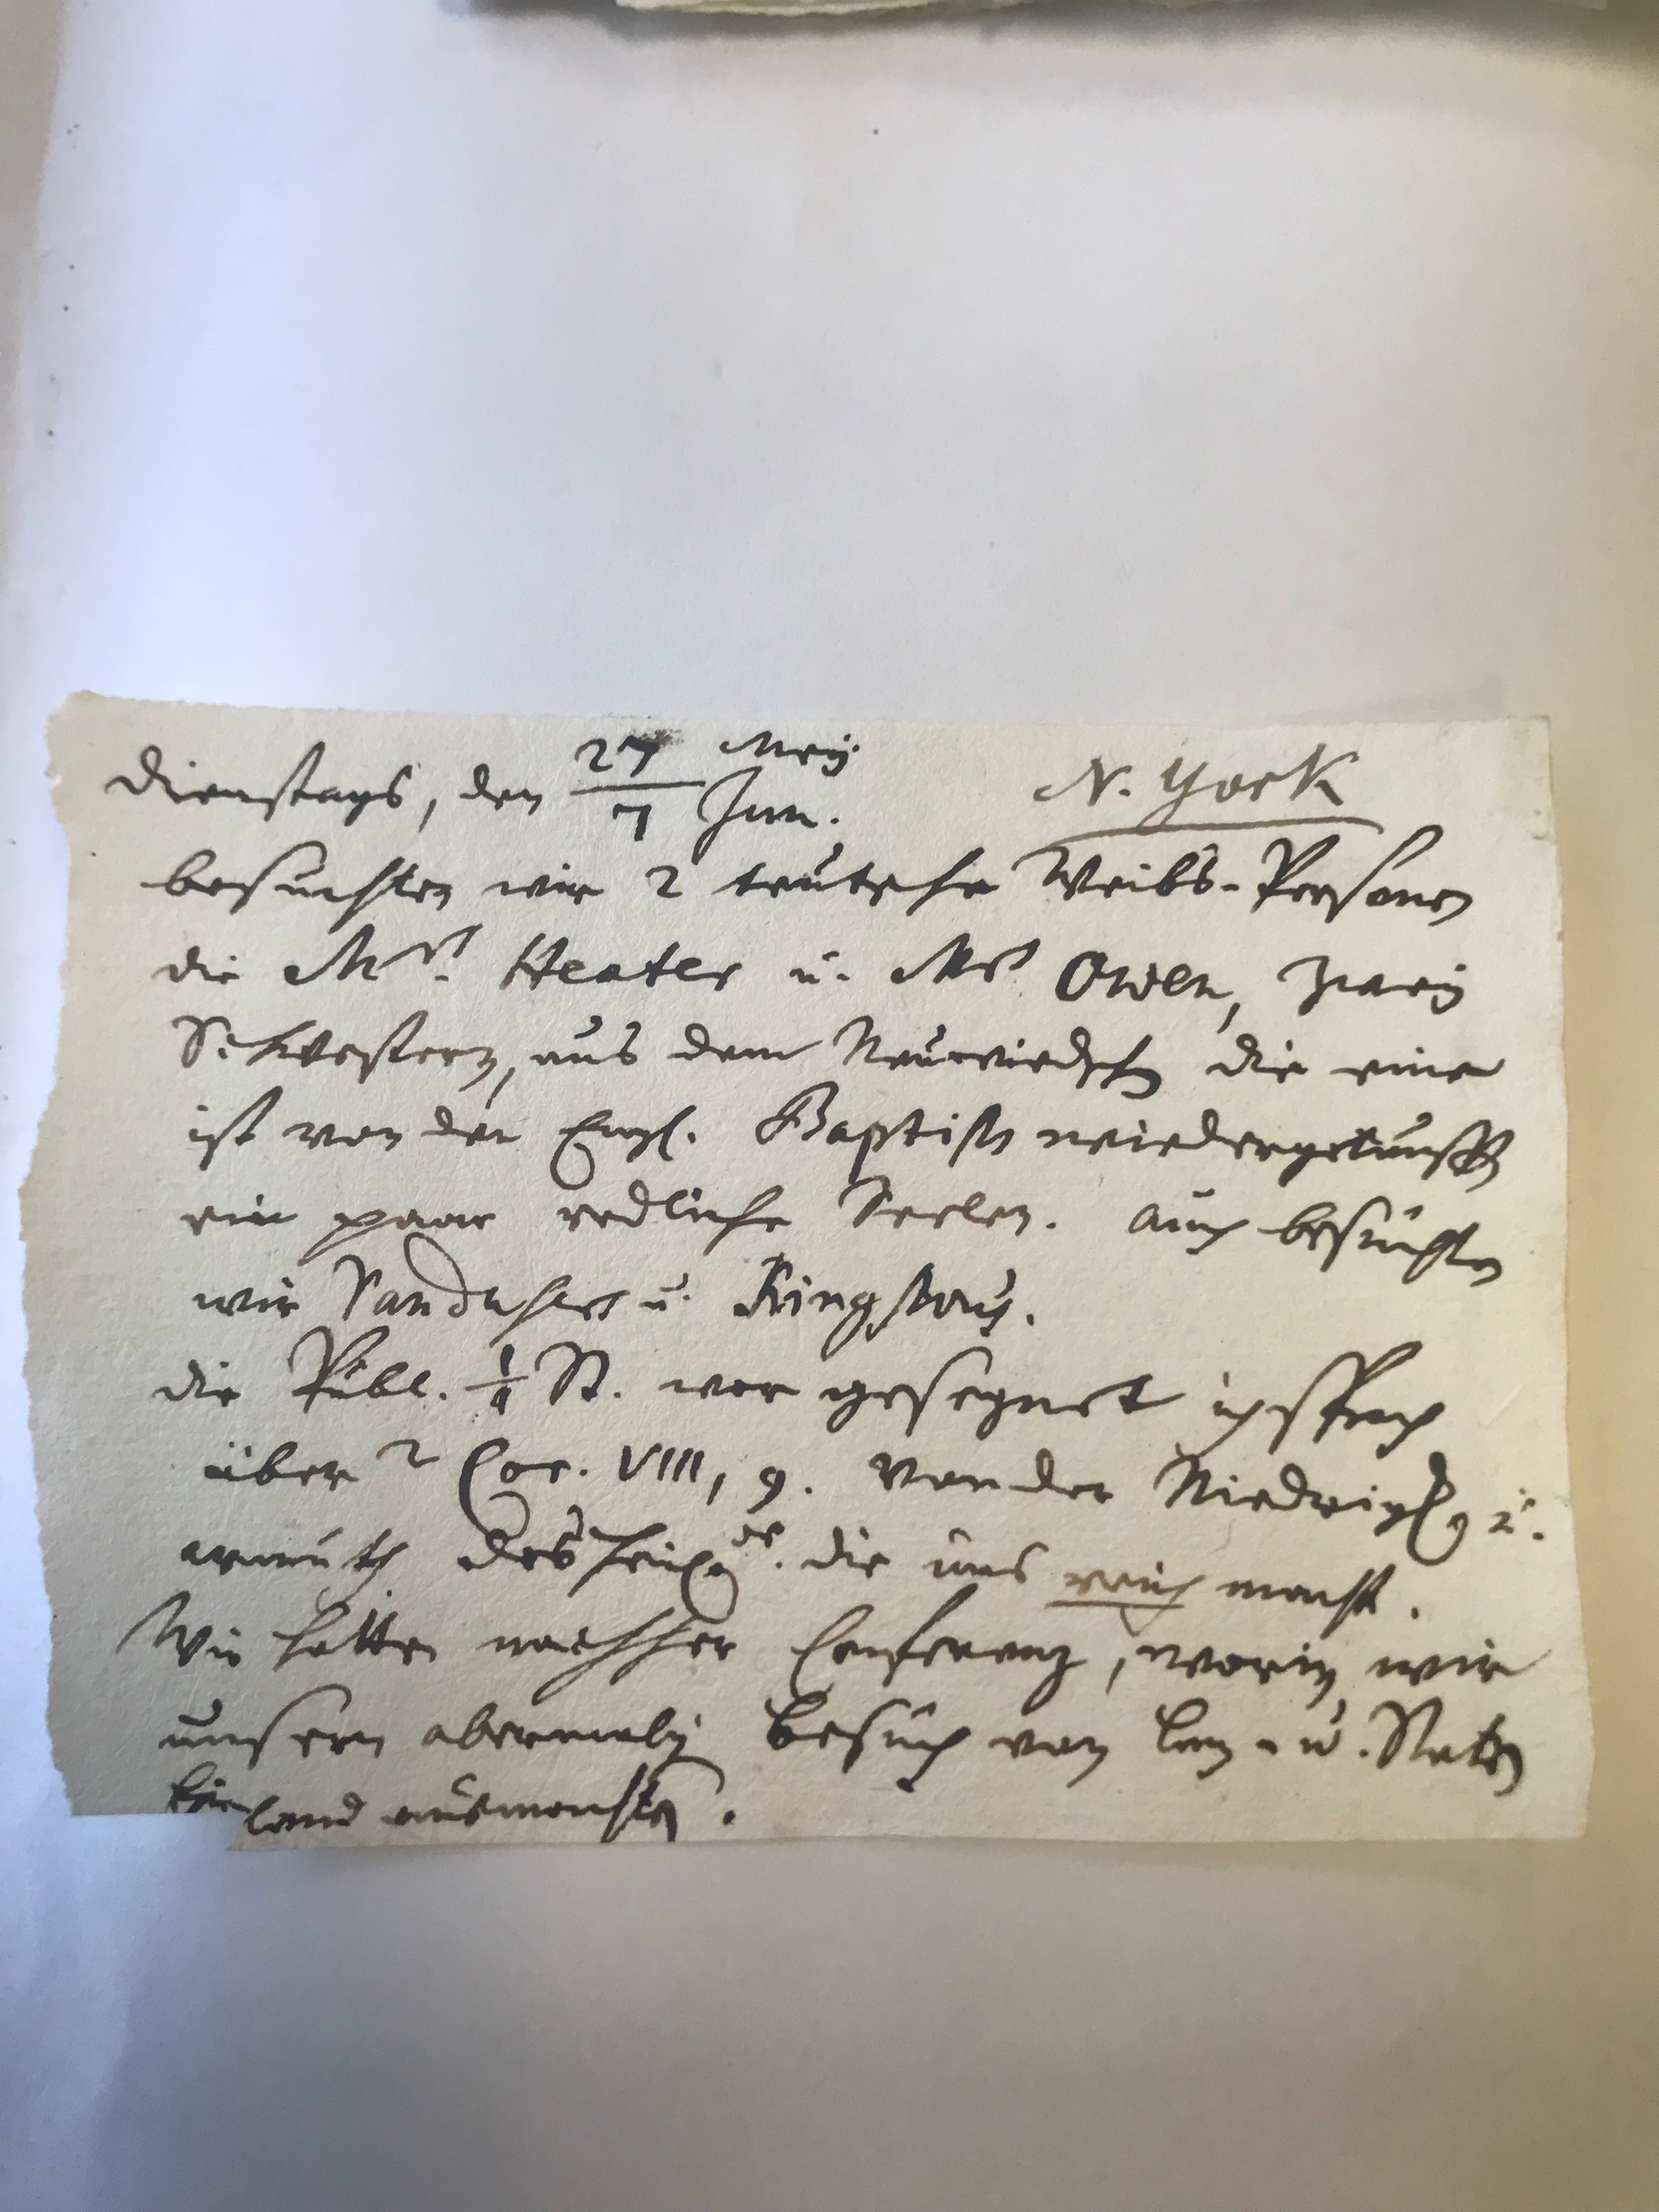 Dienstags, den 27 Meij / 7 Jun. N. York
besuchten wir 2 teutsche Weibs-Personen
die Mrs. Heatler u. Mrs Owen, zweij
Schwestern, aus dem Neuwiedschen die eine
ist von den Engl. Baptisten wiedergetaufft
ein paar redliche Seelen. auch besuchten
wir u. Kingstons.
die Publ. 1/4 St. war gesegnet ich sprach
über 2 Cor. VIII, 9. von der Niedrigkeit u.
armuth des die uns reich macht.
Wir hatten nachher Conferenz, worin wir
unsern abermalig Besuch von Long- u. Staten
land ausmachten.